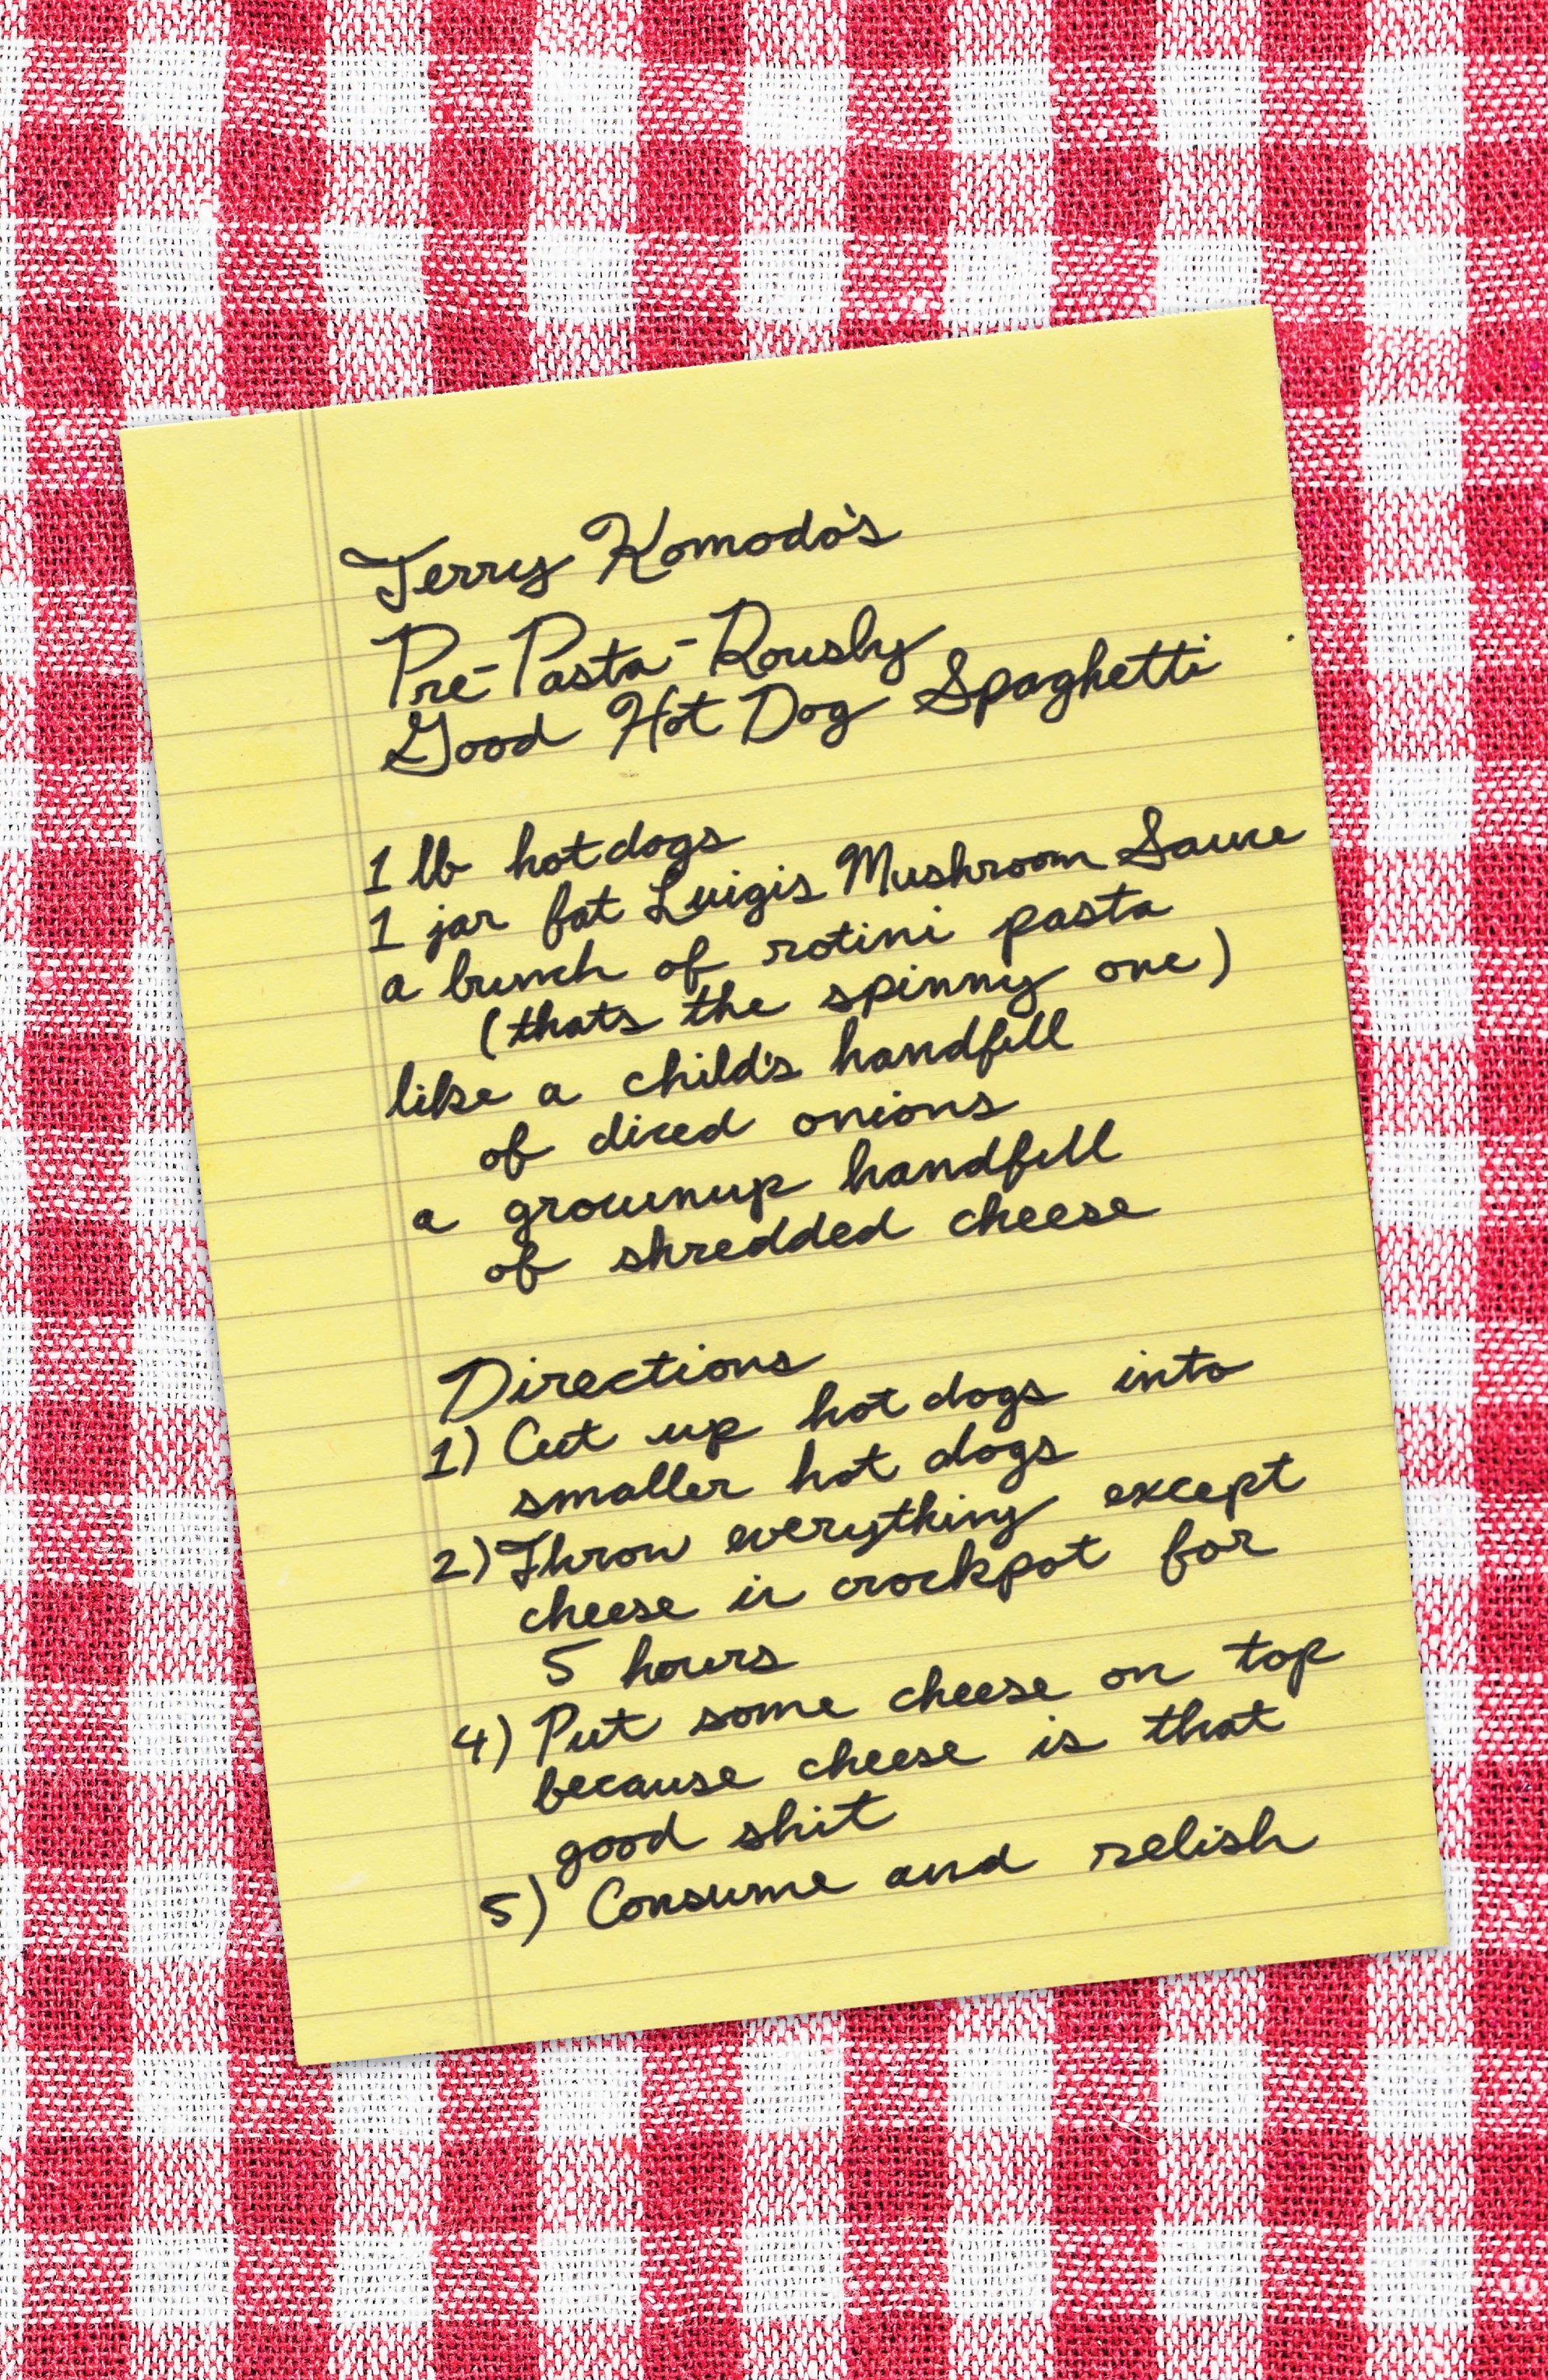 Terry Komodo's
Pre-Pasta-Rously
Good Hot Dog Spaghetti
1 lb hot dogs
1 jar fat Luigis Mushroom Sauce
a bunch of rotini pasta
(thats the spinny one)
like a child's handfull
of diced onions
a grownup handfull
of shredded cheese
Directions
1) Cut up hot dogs into
smaller hot dogs
2) Throw everything except
cheese in crockpot for
5 hours
4) Put some cheese on top
because cheese is that
good shit
5) Consume and relish